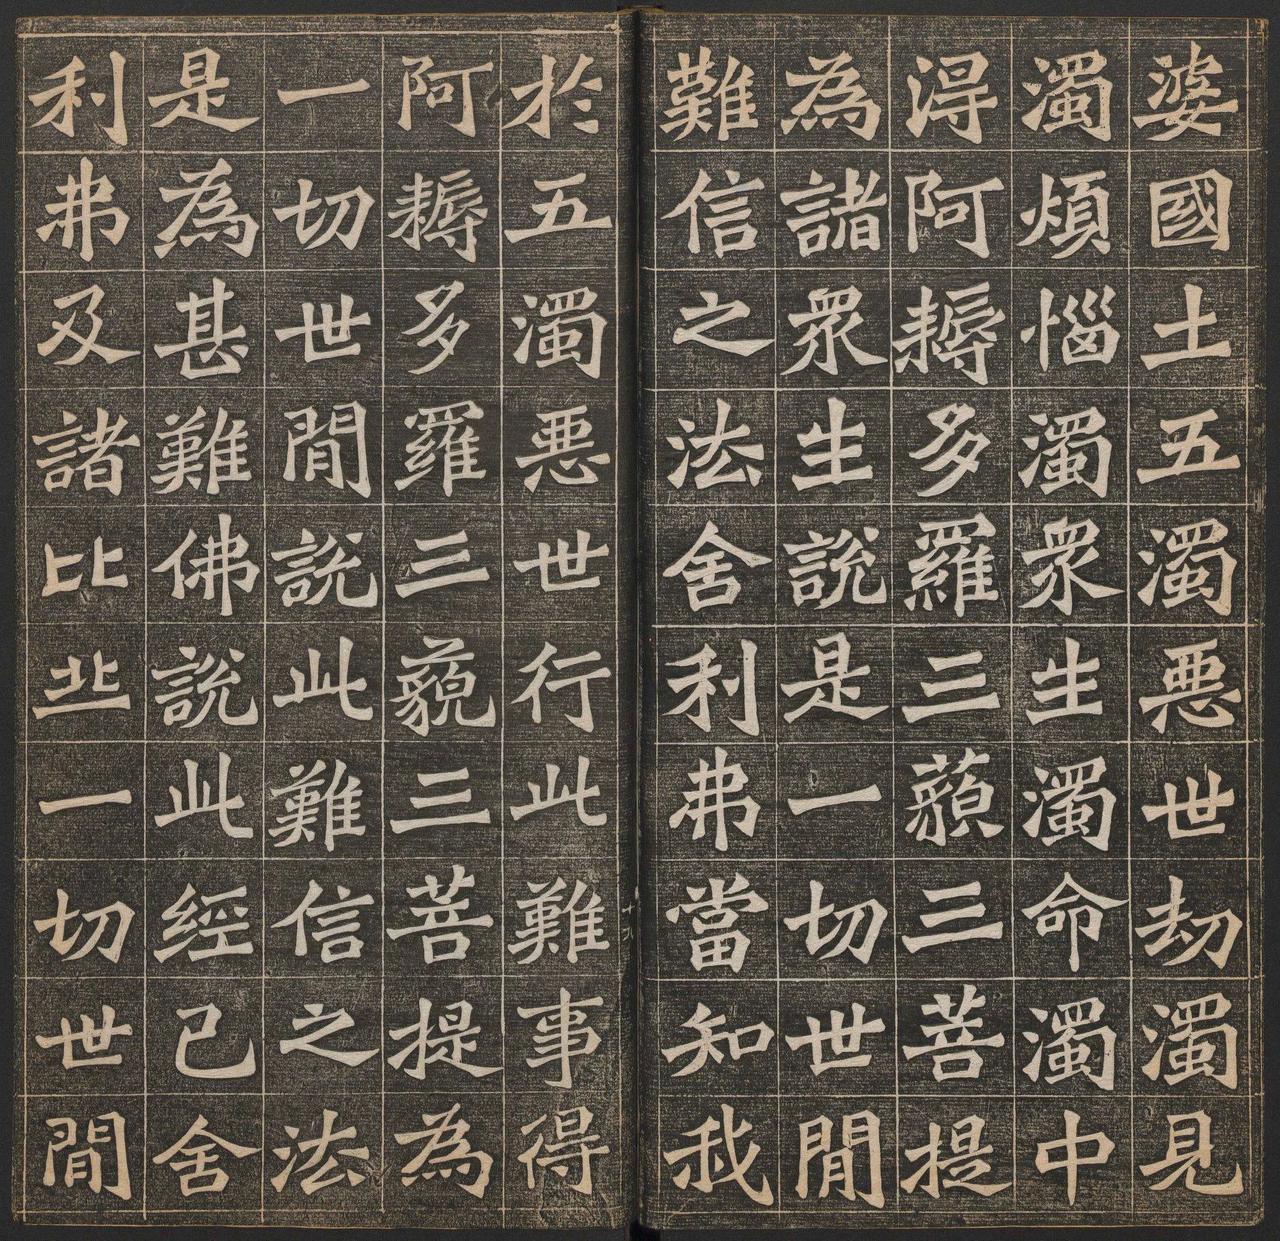 婆國土五濁惡世劫濁見
濁煩惱濁眾生濁命濁中
得阿耨多羅三藐三菩提
為諸眾生說是一切世間
難信之法舍利弗當知我
於五濁惡世行此難事得
阿耨多羅三藐三菩提為
一切世間說此難信之法
是為甚難佛說此經已舍
利弗及諸比丘一切世間